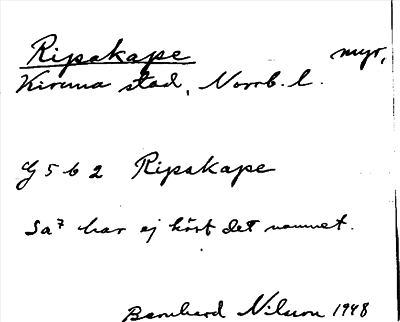 Ripakape myr,
Kiruna stad, Norrb. l.
G 5 b 2 Ripakape
Sa⁷ har ej hört det namnet.
Bernhard Nilsson 1948